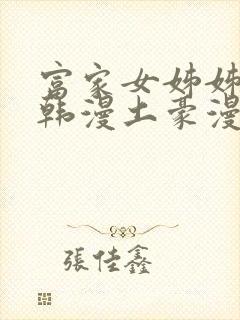 富家女姊姊
韩漫土豪漫
張佳鑫